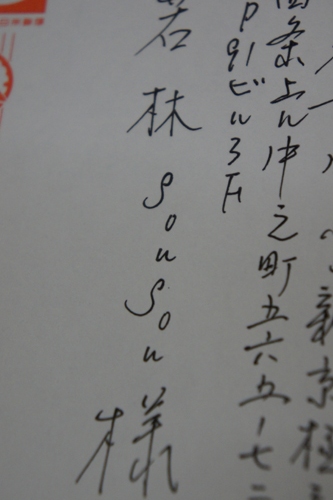 新京極
四条上ル中之町五六五ー七二
P91ビル3F
若林 SouSou 様